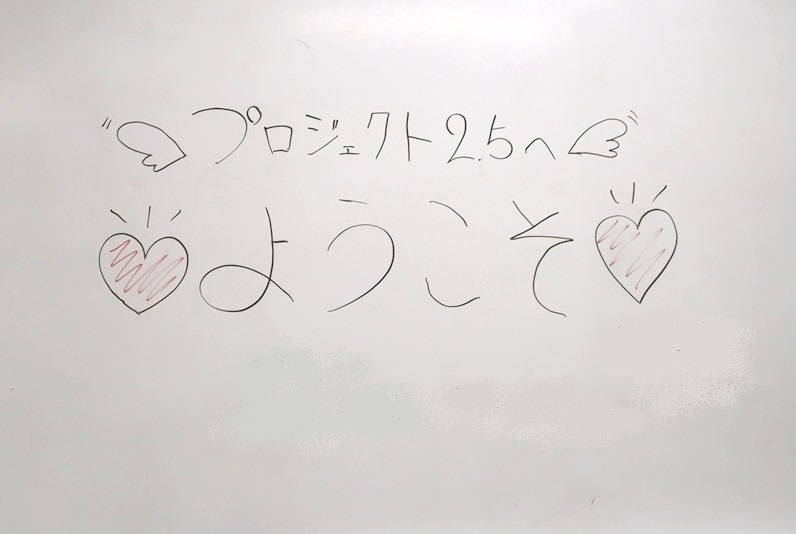 プロジェクト2.5へ
ようこそ